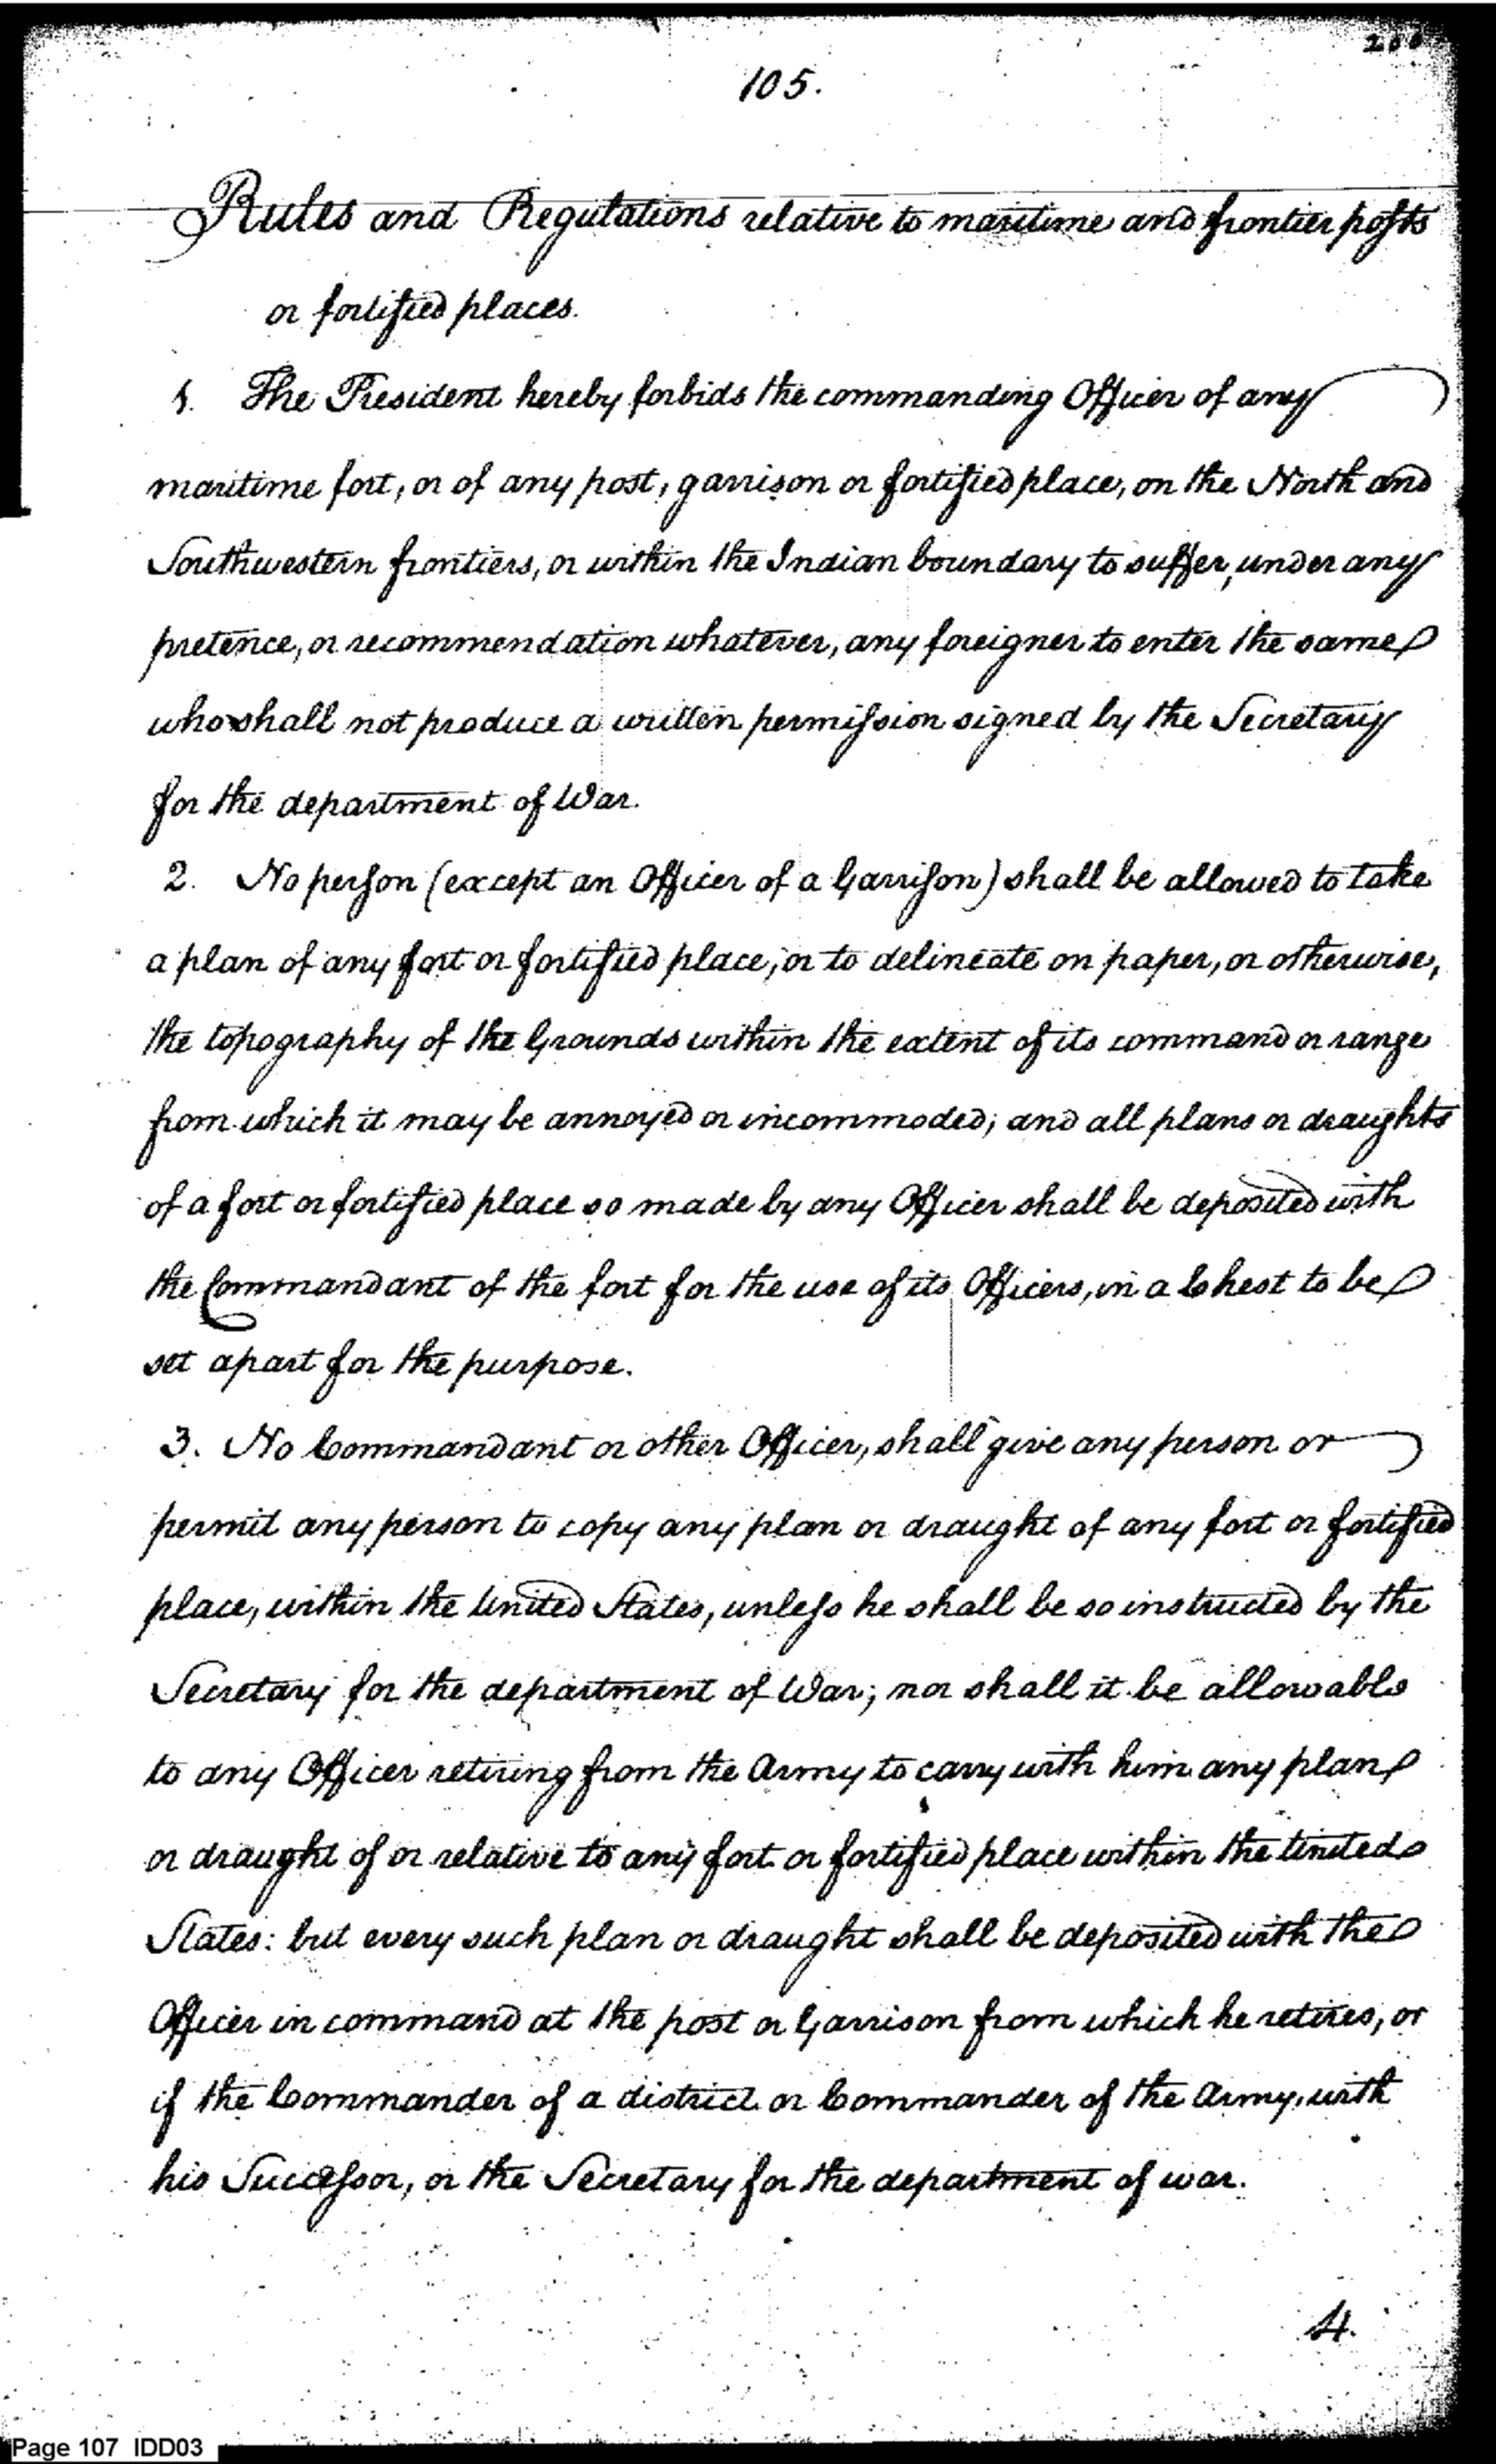 105.
Rules and Regulations relative to maritime and frontier posts
or fortified places.
1. The President hereby forbids the commanding Officer of any
maritime fort, or of any post, garrison or fortified place, on the North and
Southwestern frontiers, or within the Indian boundary to suffer, under any
pretence, or recommendation whatever, any foreigner to enter the same
who shall not produce a written permission signed by the Secretary
for the department of War.
2. No person (except an Officer of a Garrison) shall be allowed to take
a plan of any fort or fortified place, or to delineate on paper, or otherwise,
the topography of the Grounds within the extent of its command or range
from which it may be annoyed or incommoded; and all plans or draughts
of a fort or fortified place so made by any Officer shall be deposited with
the Commandant of the fort for the use of its Officers, in a Chest to be
set apart for the purpose.
3. No Commandant or other Officer, shall give any person or
permit any person to copy any plan or draught of any fort or fortified
place, within the United States, unless he shall be so instructed by the
Secretary for the department of War; nor shall it be allowable
to any Officer retiring from the Army to carry with him any plan
or draught of or relative to any fort or fortified place within the United
States: but every such plan or draught shall be deposited with the
Officer in command at the post or Garrison from which he retires, or
if the Commander of a district or Commander of the Army, with
his Successor, or the Secretary for the department of war.
4.
Page 107 IDD03